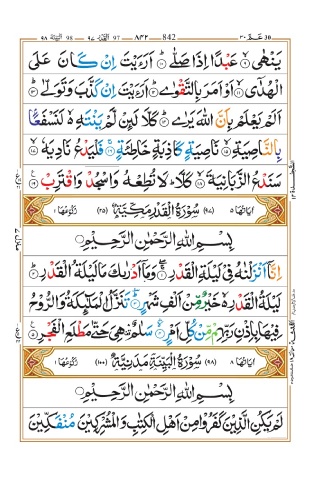 البينة ٩٨ 98 القدر ٩٧ 97 ٨٤٢ 842 عم ٣٠ 30
يَنْهٰى ۙ‏ عَبْدًا اِذَا صَلّٰى ؕ‏ اَرَءَيْتَ اِنْ كَانَ عَلَى
الْهُدٰٓى ۙ‏ اَوْ اَمَرَ بِالتَّقْوٰى ؕ‏ اَرَءَيْتَ اِنْ كَذَّبَ وَتَوَلّٰى ؕ‏
اَلَمْ يَعْلَمْ بِاَنَّ اللّٰهَ يَرٰى ؕ‏ كَلَّا لَٮِٕنْ لَّمْ يَنْتَهِ ۙ لَنَسْفَعًۢا
بِالنَّاصِيَةِ ۙ‏ نَاصِيَةٍ كَاذِبَةٍ خَاطِئَةٍ ۚ‏ فَلْيَدْعُ نَادِيَهٗ ۙ‏
سَنَدْعُ الزَّبَانِيَةَ ۙ‏ كَلَّا ؕ لَا تُطِعْهُ وَاسْجُدْ وَاقْتَرِبْ
اٰيَاتُهَا ٥ (٩٧) سُوْرَةُ الْقَدْرِ مَكِّيَّةٌ (٢٥) رُكُوْعُهَا ١
بِسْمِ اللّٰهِ الرَّحْمٰنِ الرَّحِيْمِ
اِنَّاۤ اَنْزَلْنٰهُ فِيْ لَيْلَةِ الْقَدْرِ ۚ وَمَاۤ اَدْرٰىكَ مَا لَيْلَةُ الْقَدْرِ ؕ
لَيْلَةُ الْقَدْرِ ۙ خَيْرٌ مِّنْ اَلْفِ شَهْرٍ ؕ تَنَزَّلُ الْمَلٰٓٮِٕكَةُ وَالرُّوْحُ
فِيْهَا بِاِذْنِ رَبِّهِمْ ۚ مِّنْ كُلِّ اَمْرٍ ۙ سَلٰمٌ ۛ هِيَ حَتّٰى مَطْلَعِ الْفَجْرِ
اٰيَاتُهَا ٨ (٩٨) سُوْرَةُ الْبَيِّنَةِ مَدَنِيَّةٌ (١٠٠) رُكُوْعُهَا ١
بِسْمِ اللّٰهِ الرَّحْمٰنِ الرَّحِيْمِ
لَمْ يَكُنِ الَّذِيْنَ كَفَرُوْا مِنْ اَهْلِ الْكِتٰبِ وَالْمُشْرِكِيْنَ مُنْفَكِّيْنَ